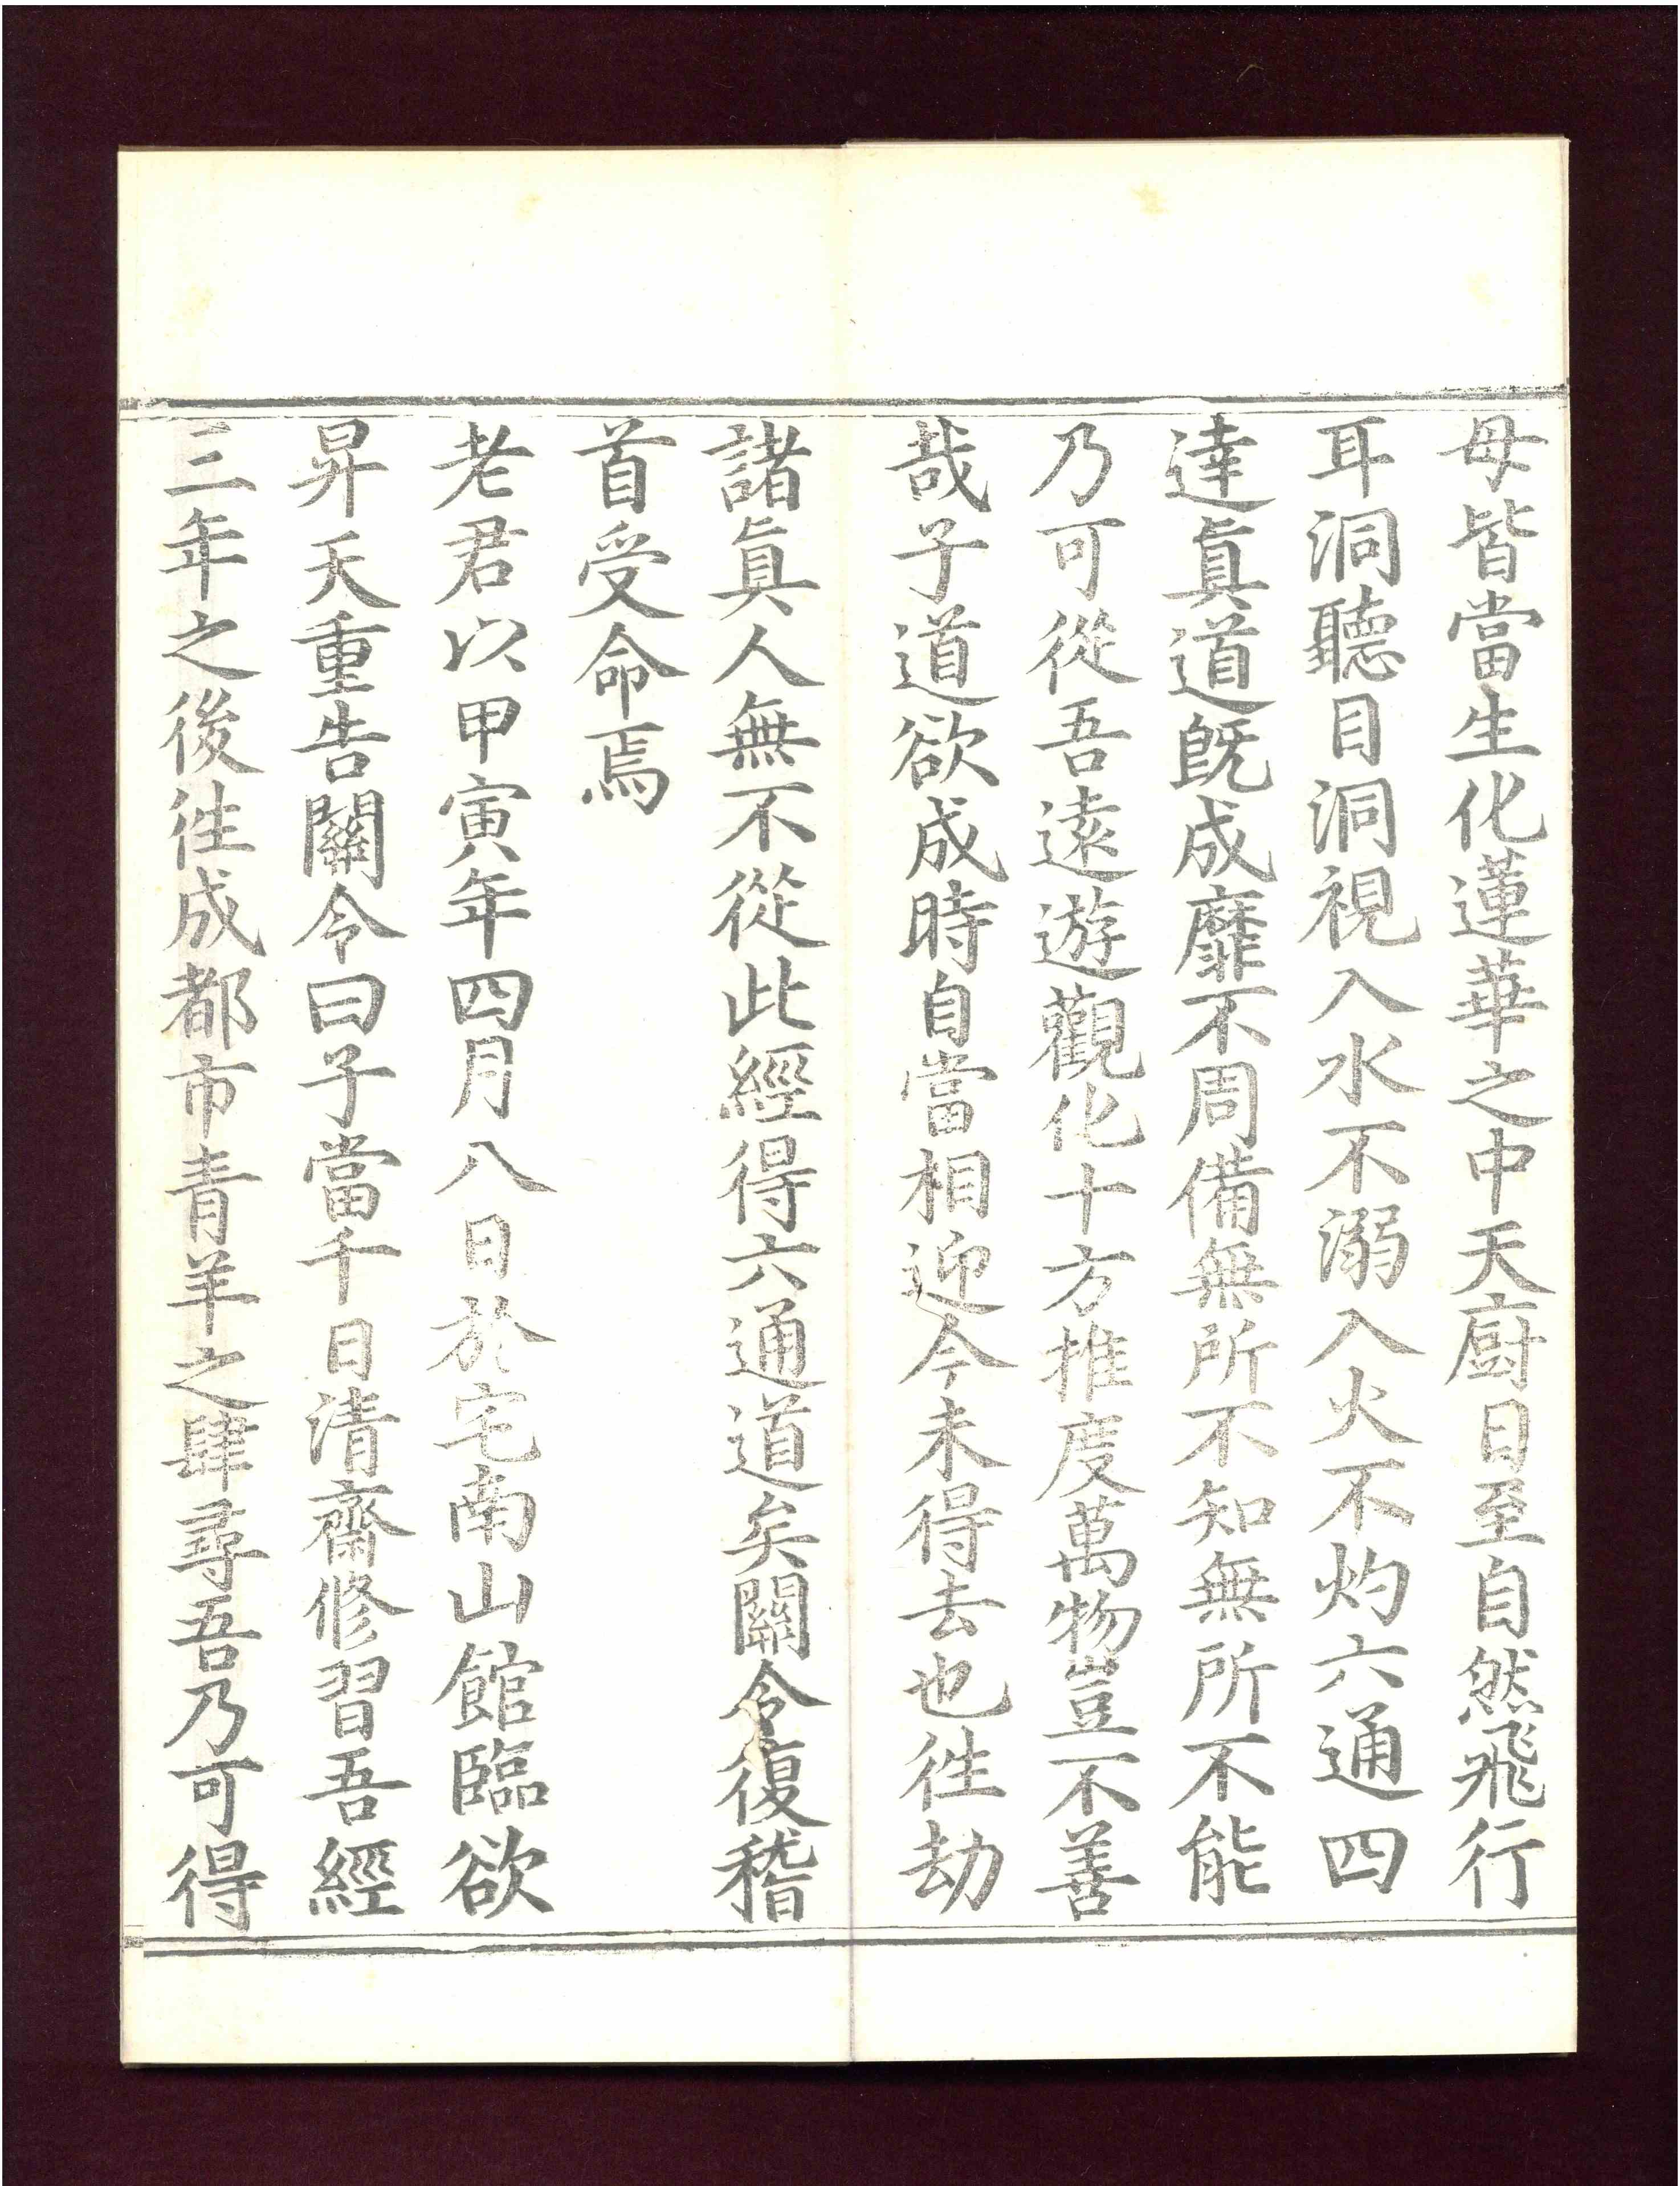 母皆當生化蓮華之中天廚目至自然飛行
耳洞聽目洞視入水不溺入火不灼六通四
達真道旣成靡不周備無所不知無所不能
乃可從吾遠遊觀化十方推度萬物豈不善
哉子道欲成時自當相迎今未得去也往劫
諸眞人無不從此經得六通道矣關令復稽
首受命焉
老君以甲寅年四月八日於宅南山館臨欲
昇天重告關令曰子當千日清齋修習吾經
三年之後往成都市青羊之肆尋吾乃可得